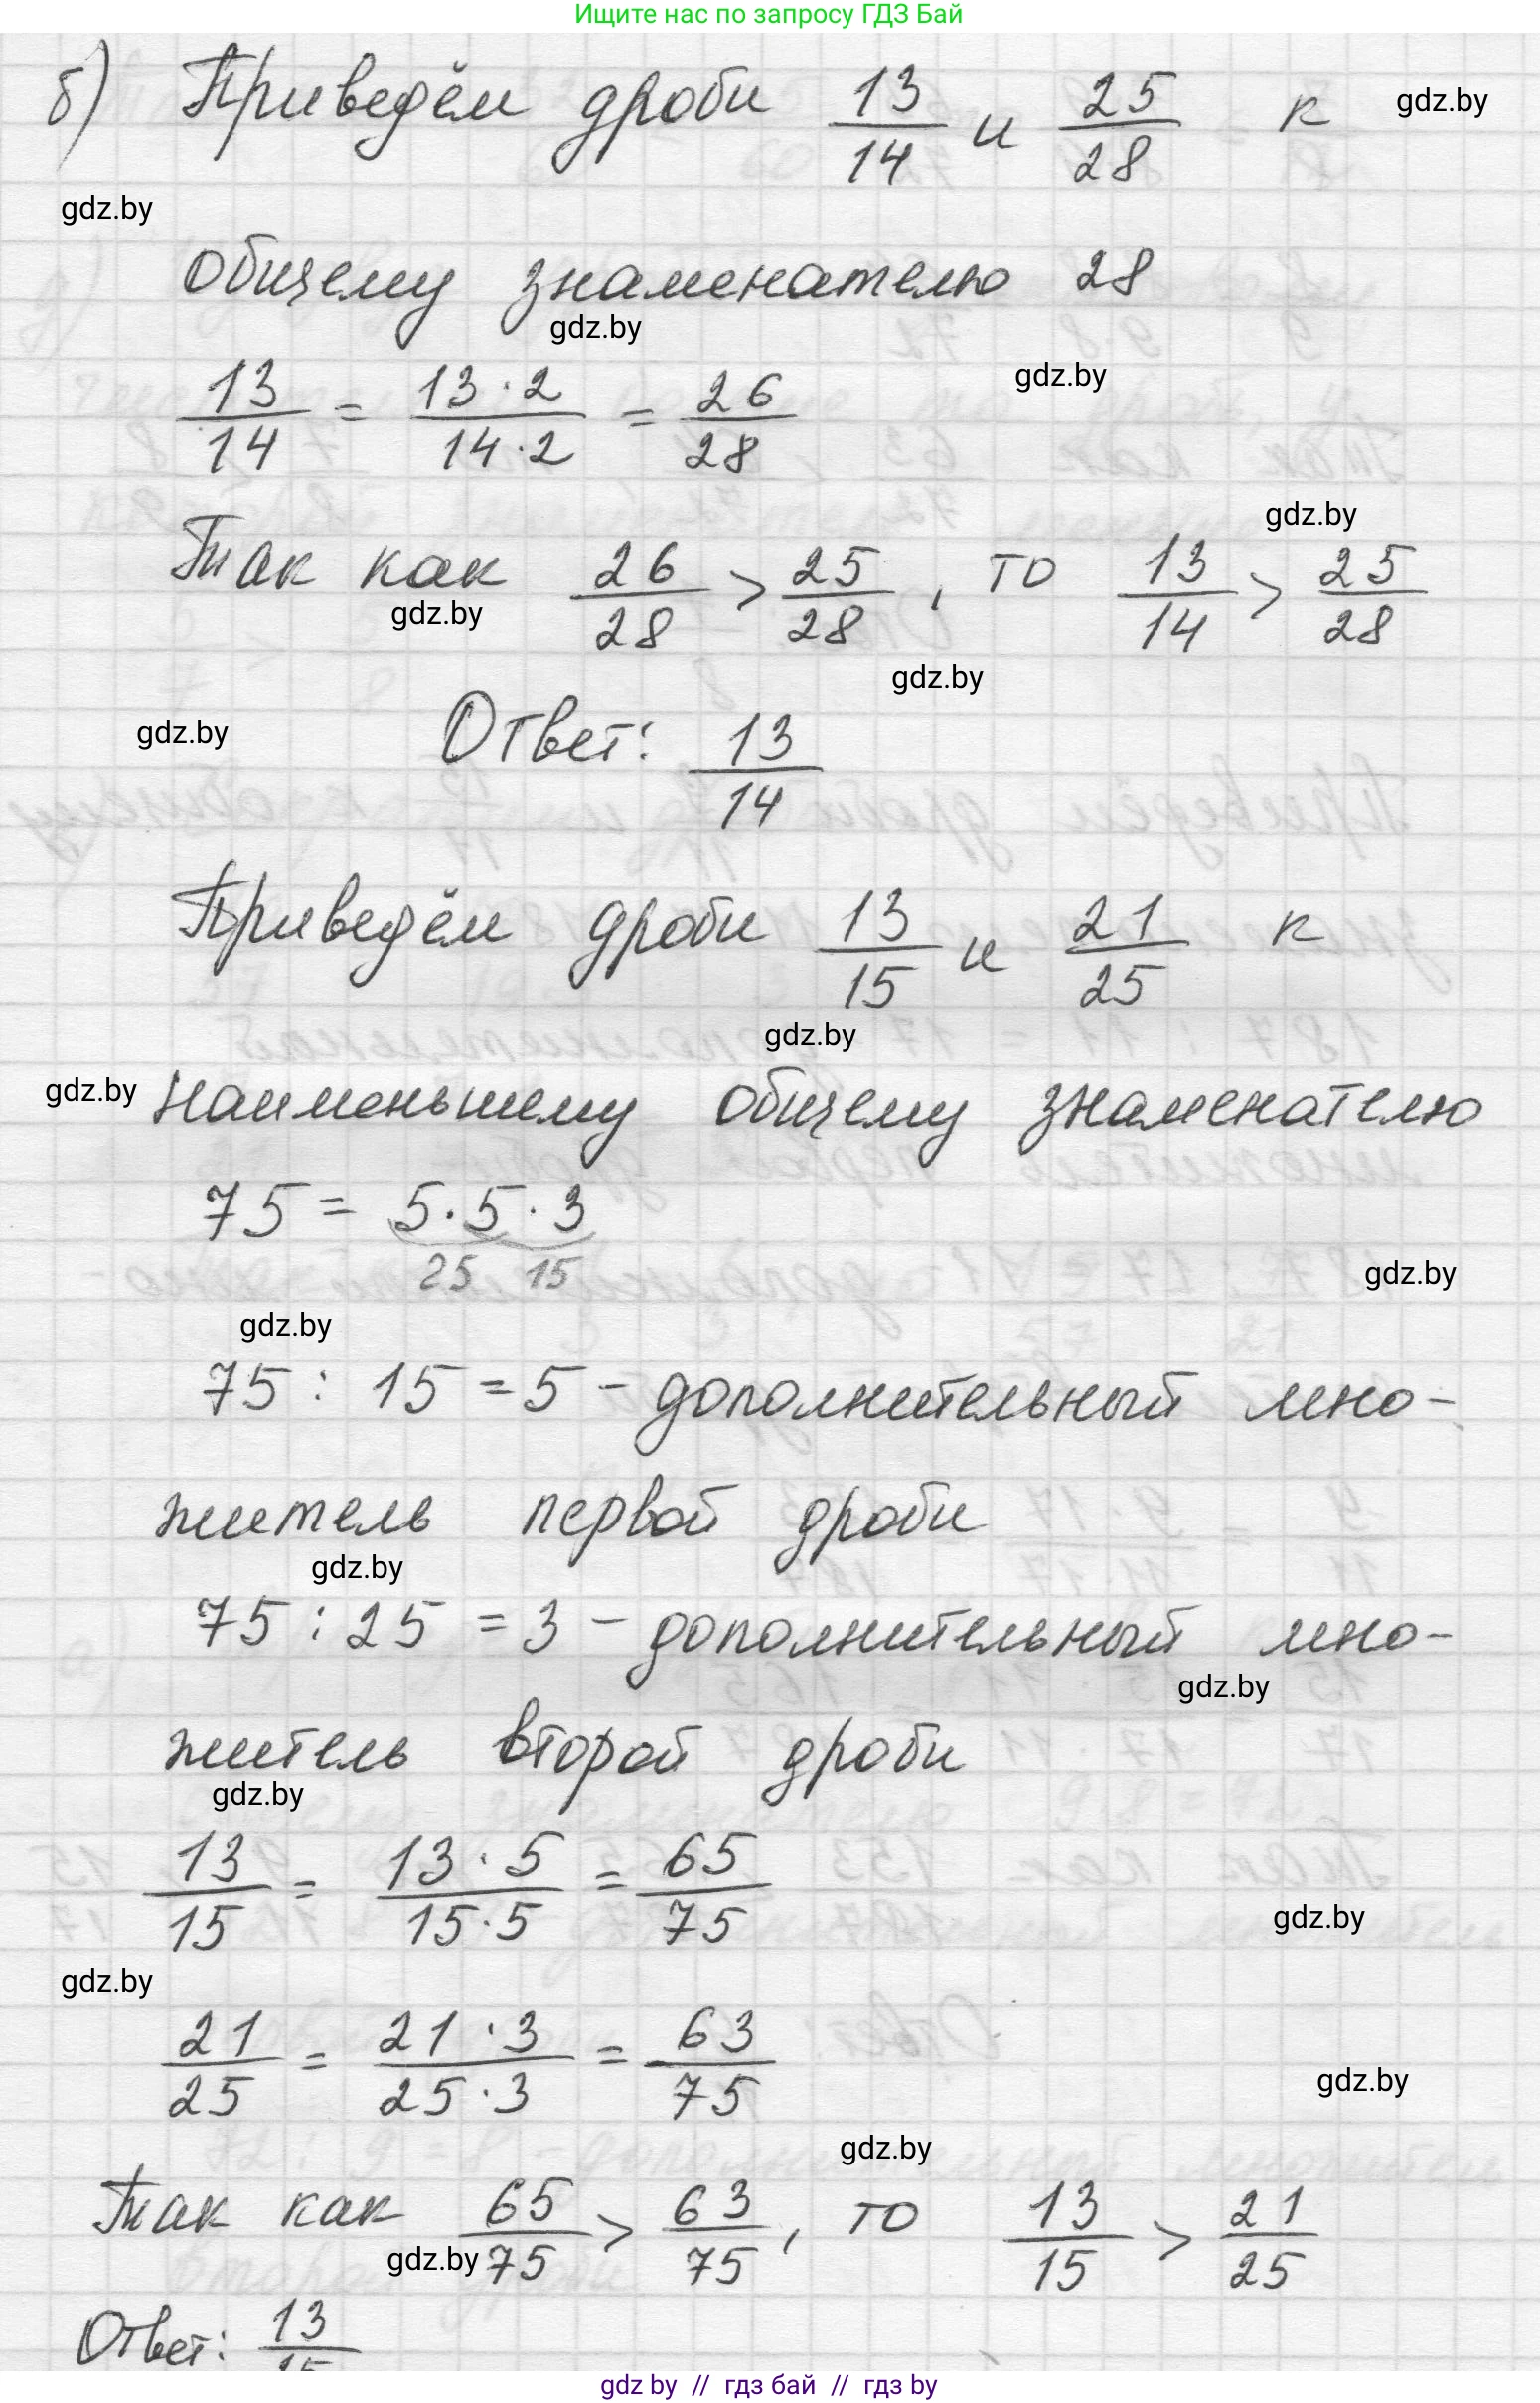 Ищите нас по запросу ГДЗ Бай
б) Приведём дроби 13/14 и 25/28 к
gdz.by
gdz.by
общему знаменателю 28
gdz.by
gdz.by
13/14 = 13·2/14·2 = 26/28
gdz.by
Так как 26/28 > 25/28, то 13/14 > 25/28
gdz.by
gdz.by
gdz.by
Ответ: 13/14
Приведём дроби 13/15 и 21/25 к
gdz.by
gdz.by
наименьшему общему знаменателю
75 = 5·5·3
25 15
gdz.by
gdz.by
75 : 15 = 5 - дополнительный мно-
житель первой дроби
gdz.by
75 : 25 = 3 - дополнительный мно-
gdz.by
житель второй дроби
gdz.by
13/15 = 13·5/15·5 = 65/75
gdz.by
gdz.by
21/25 = 21·3/25·3 = 63/75
gdz.by
gdz.by
Так как 65/75 > 63/75, то 13/15 > 21/25
gdz.by
Ответ: 13/15
gdz by // гдз бай // гдз by